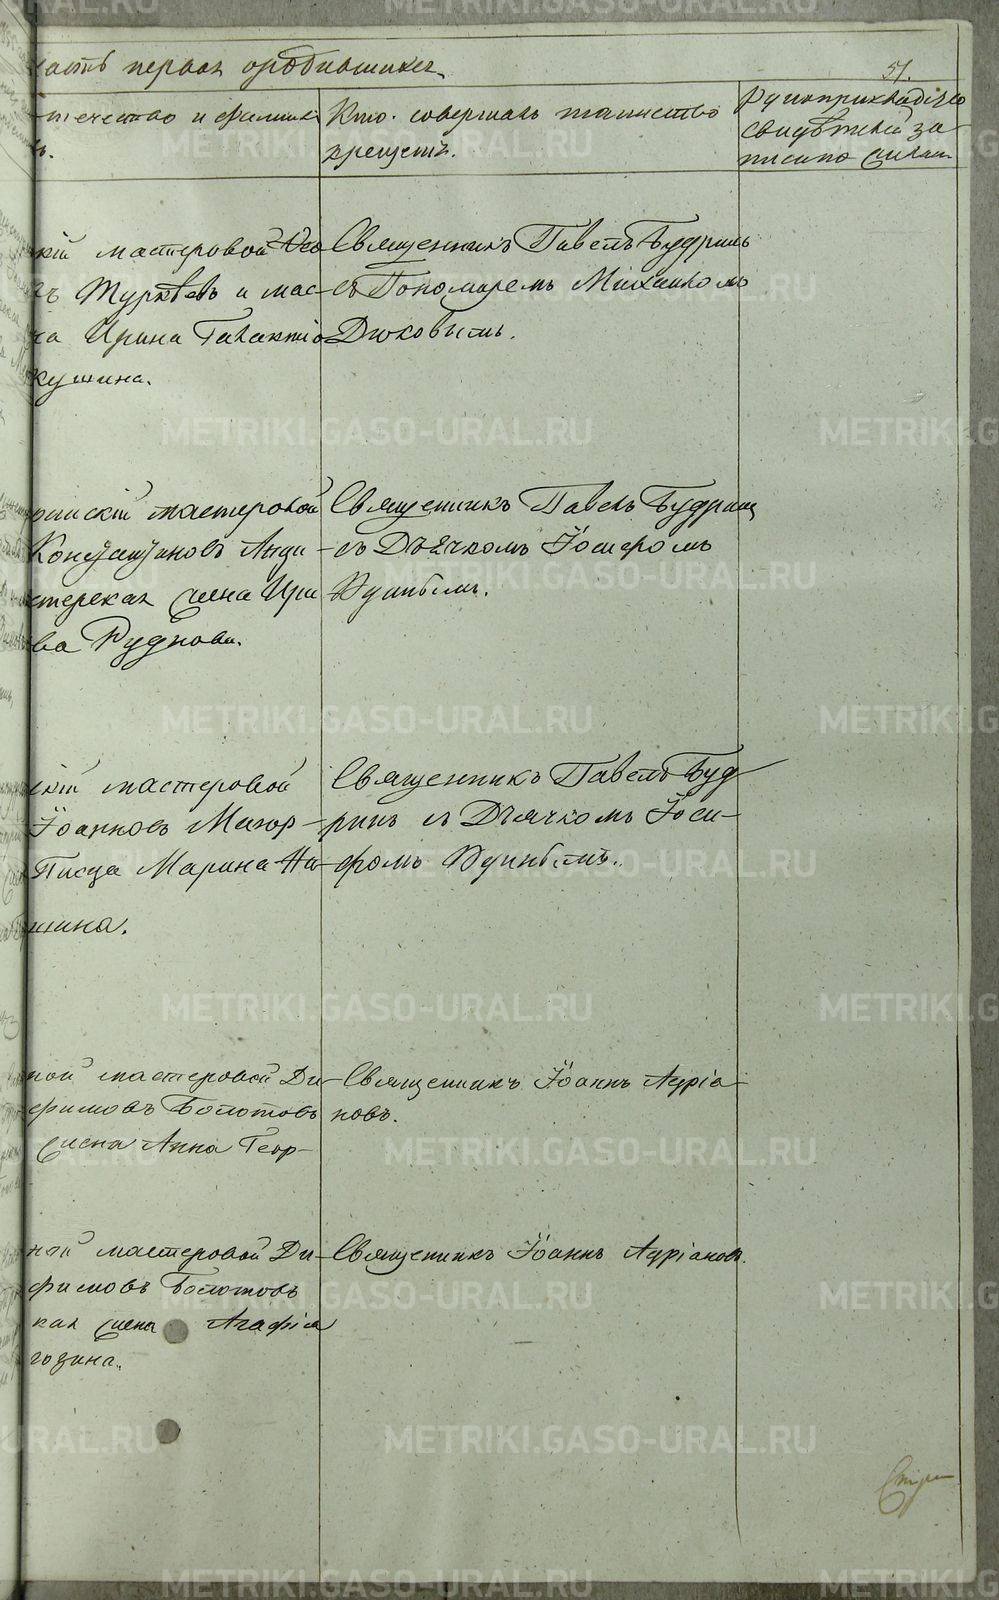 часть первая о родившихся
51.
отчество и фамилія
Кто совершалъ таинство
крещенія.
Рукоприкладство
свидѣтелей за-
писано
кій мастеровой
ъ Туркѣевъ и мас-
ка Ирина Галактіо
кушина.
Священникъ Павелъ Будринъ
съ Пономаремъ Михаиломъ
Дюковымъ.
ринскій мастеровой
Константиновъ
стерская жена Ири
ва Руднова.
Священникъ Павелъ Будринъ
съ Дьячкомъ Іосифомъ
скій мастеровой
Іоанновъ
Марина Ни-
шина.
Священникъ Павелъ Буд-
ринъ съ Дьячкомъ Іоси-
фомъ
ной мастеровой Ди-
фимовъ Болотовъ
жена Анна Геор-
Священникъ Іоаннъ Адріа-
новъ.
ной мастеровой Ди-
фимовъ Болотовъ
кая жена Агафія
година.
Священникъ Іоаннъ Адріановъ.
METRIKI.GASO-URAL.RU